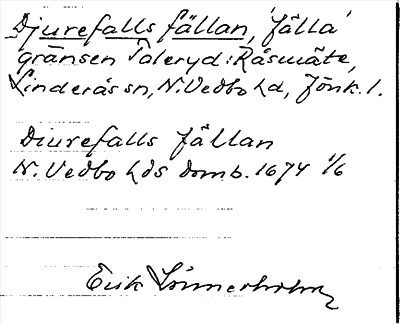 Djurefalls fällan, 'fälla'
gränsen Toleryd: Råsmåte,
Linderås sn, N. Vedbo hd, Jönk. l.
Diurefalls fällan
N. Vedbo hds domb. 1674 1/6
Erik Lönnerholm